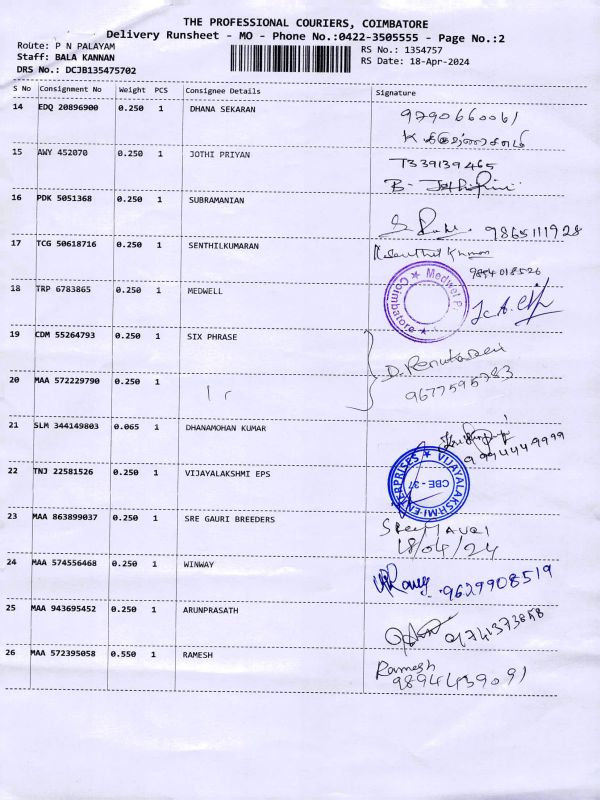 THE PROFESSIONAL COURIERS, COIMBATORE
Delivery Runsheet - MO - Phone No.:0422-3505555 - Page No.:2
Route: P N PALAYAM
Staff: BALA KANNAN
DRS No.: DCJB135475702
RS No.: 1354757
RS Date: 18-Apr-2024
S No Consignment No Weight PCS Consignee Details Signature
14 EDQ 20896900 0.250 1 DHANA SEKARAN
9790660061
15 AWY 452070 0.250 1 JOTHI PRIYAN
7339139465
B-
16 PDK 5051368 0.250 1 SUBRAMANIAN
9865111928
17 TCG 50618716 0.250 1 SENTHILKUMARAN
Senthil Kumar
9894018526
18 TRP 6783865 0.250 1 MEDWELL
Coimbatore
19 CDM 55264793 0.250 1 SIX PHRASE
D. Renukadevi
9677595783
20 MAA 572229790 0.250 1
21 SLM 344149803 0.065 1 DHANAMOHAN KUMAR
9994449999
22 TNJ 22581526 0.250 1 VIJAYALAKSHMI EPS
VIJAYALAKSHMI ENTERPRISES
CBE - 37
23 MAA 863899037 0.250 1 SRE GAURI BREEDERS
18/04/24
24 MAA 574556468 0.250 1 WINWAY
9629908519
25 MAA 943695452 0.250 1 ARUNPRASATH
9741373858
26 MAA 572395058 0.550 1 RAMESH
Ramesh
9894439091